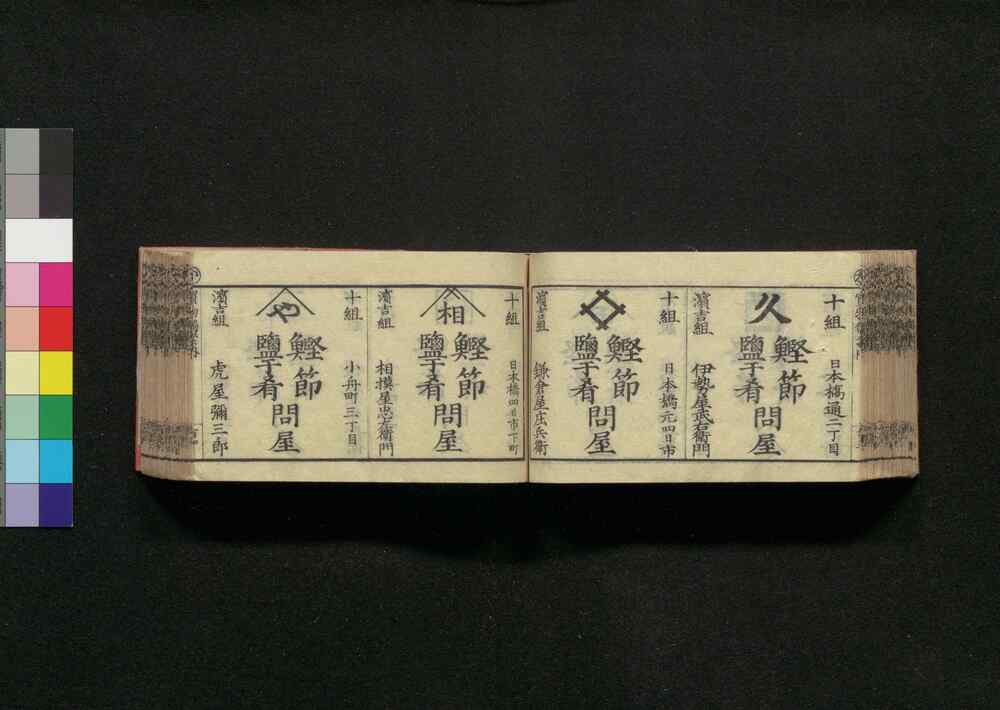 十組
日本橋通二丁目
久
鰹節
鹽干肴
問屋
濱吉組
伊勢屋武右衛門
十組
日本橋元四日市
鰹節
鹽干肴
問屋
濱吉組
鎌倉屋庄兵衛
十組
日本橋四日市下町
相
鰹節
鹽干肴
問屋
濱吉組
相摸屋忠左衛門
十組
小舟町三丁目
や
鰹節
鹽干肴
問屋
濱吉組
虎屋彌三郎